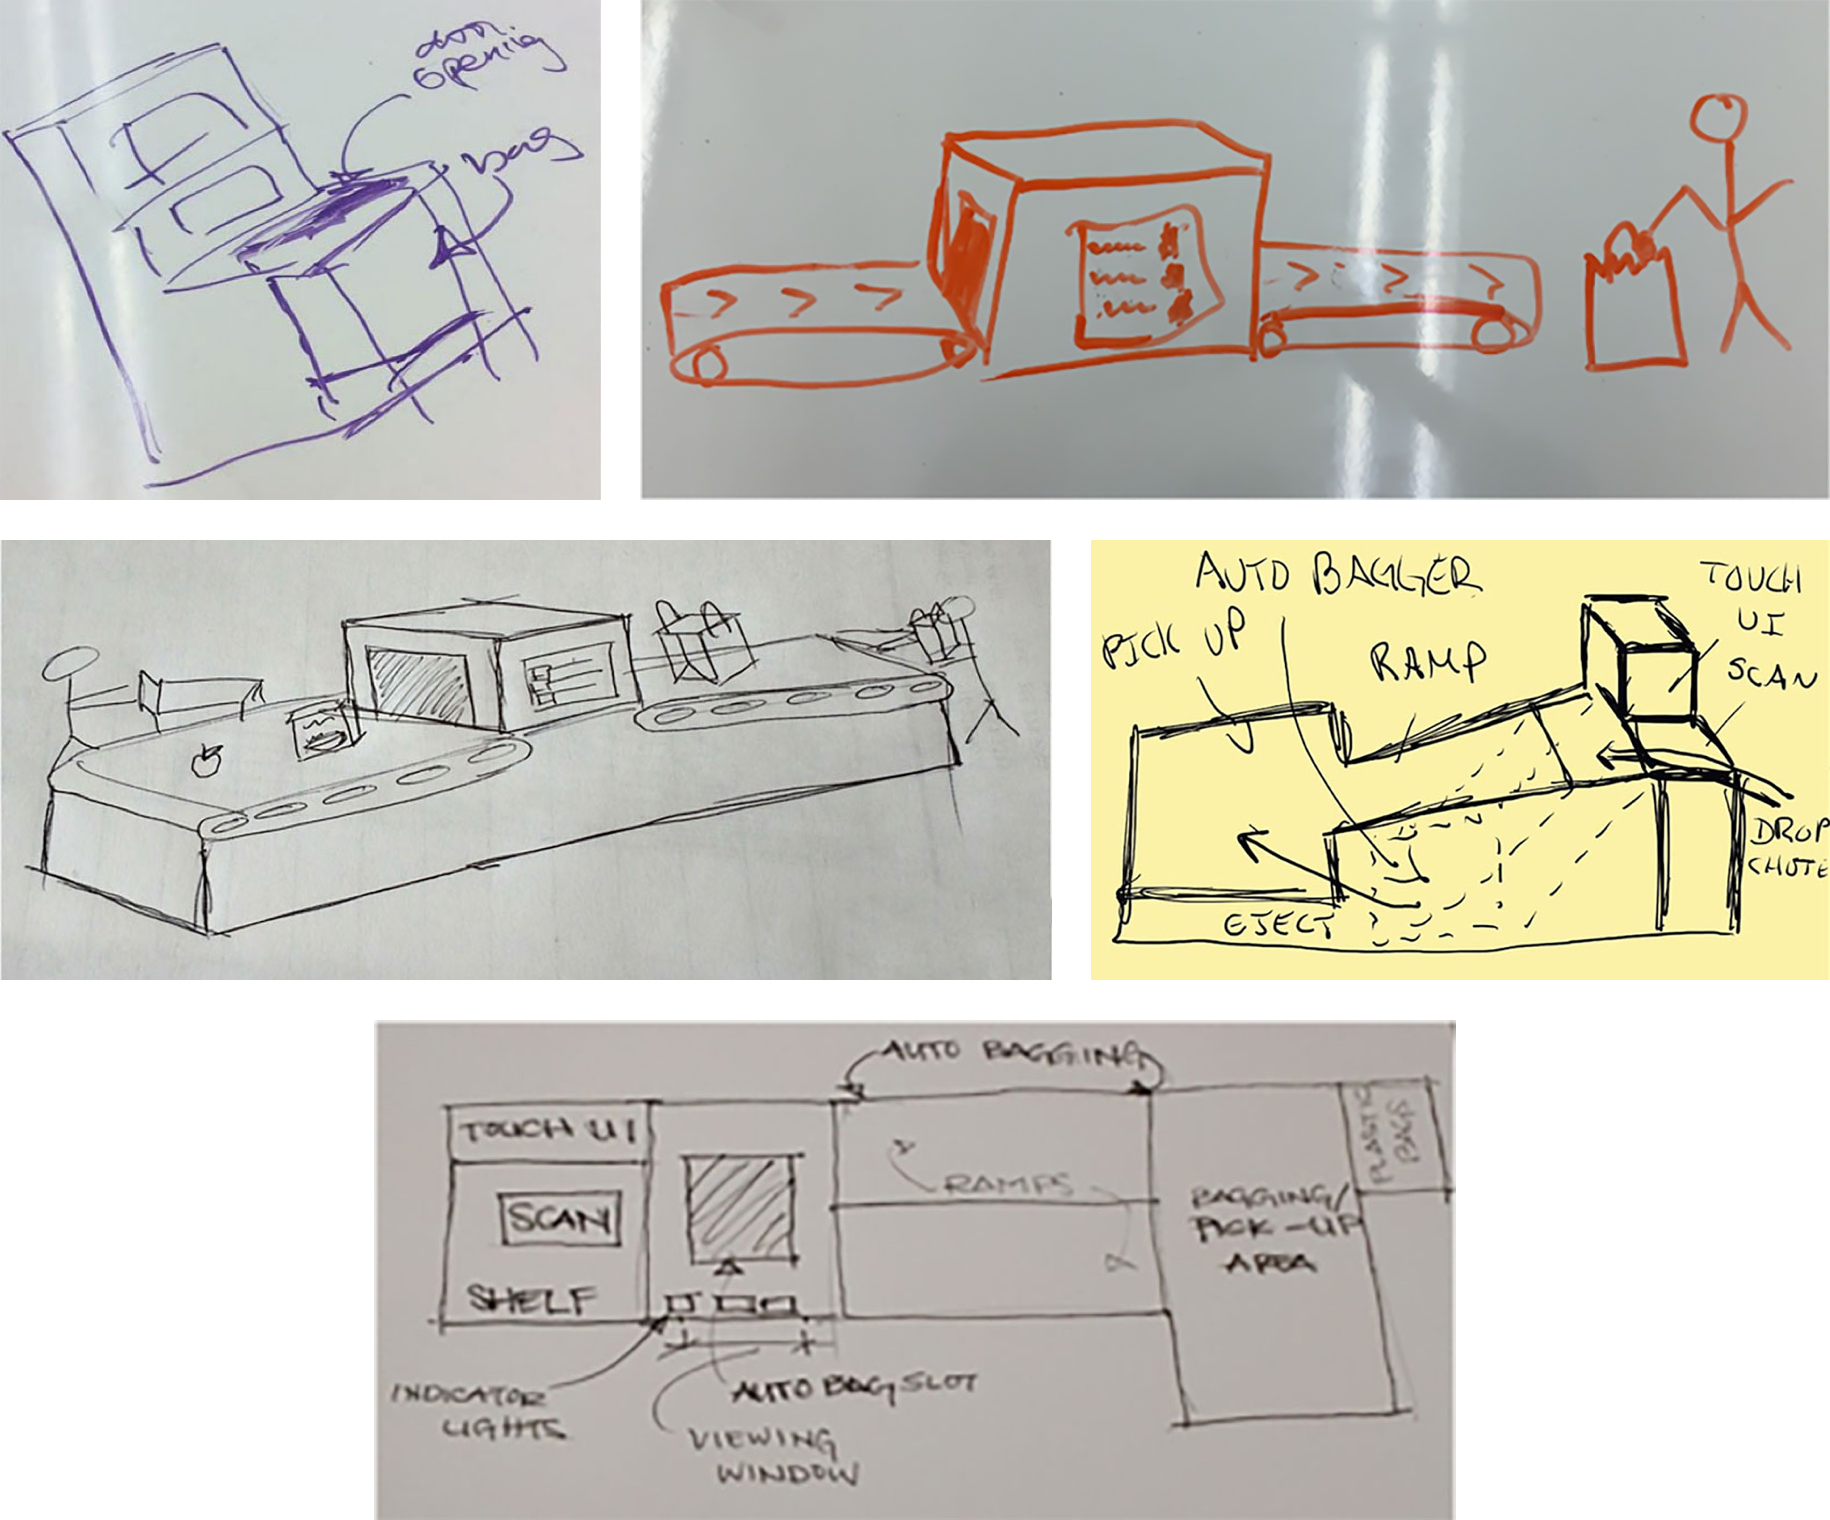 door
opening
bag
AUTO BAGGER
TOUCH
UI
PICK UP
RAMP
SCAN
DROP
CHUTE
EJECT
AUTO BAGGING
TOUCH UI
PLASTIC
BAGS
RAMPS
SCAN
BAGGING/
PICK-UP
AREA
SHELF
INDICATOR
LIGHTS
AUTO BAG SLOT
VIEWING
WINDOW